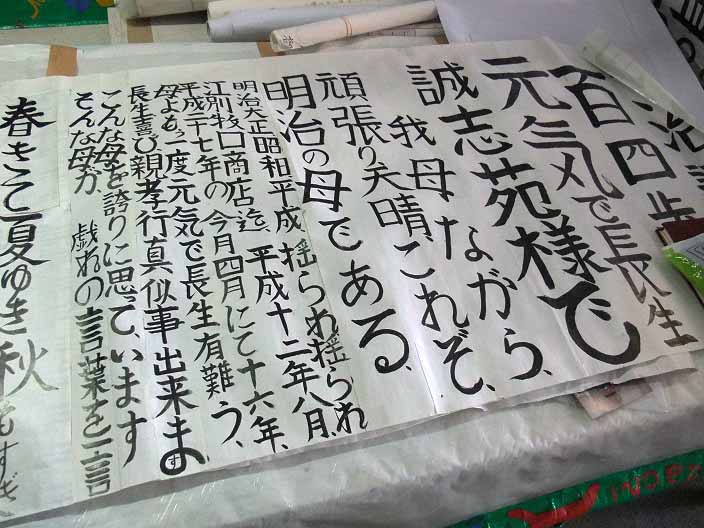 百四歩
元気で長生
誠志苑様で
我母ながら、
頑張り天晴、これぞ、
明治の母である、
明治大正昭和平成、揺られ揺られ
江別牧口商店迄、平成十二年八月、
平成二十七年の今月四月にて十六年、
母よもう一度元気で長生有難う、
長生喜び親孝行真似事出来ます
こんな母を誇りに思っています
そんな母が、戯れの言葉を一言
春きて夏ゆき秋もすぎ
INDEX